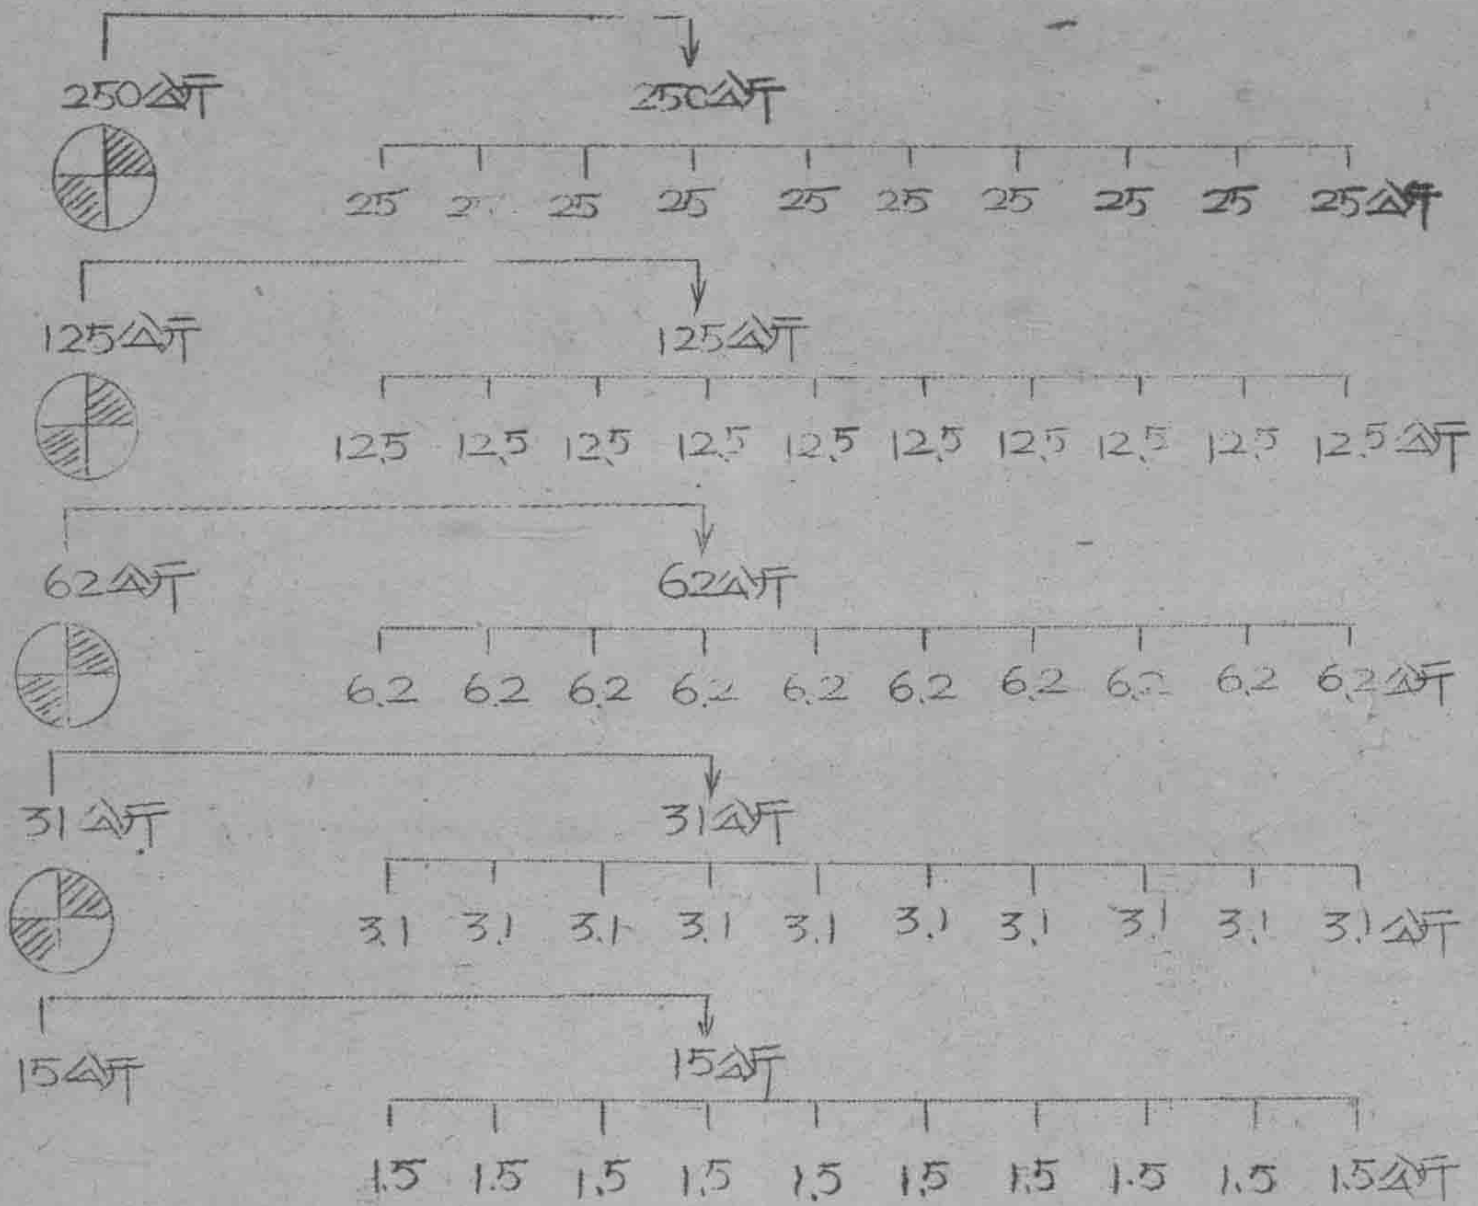 250公斤 250公斤
25 2 25 25 25 25 25 25 25 25公斤
125公斤 125公斤
12.5 12.5 12.5 12.5 12.5 12.5 12.5 12.5 12.5 12.5公斤
62公斤 62公斤
6.2 6.2 6.2 6.2 6.2 6.2 6.2 6.2 6.2 6.2公斤
31公斤 31公斤
3.1 3.1 3.1 3.1 3.1 3.1 3.1 3.1 3.1 3.1公斤
15公斤 15公斤
1.5 1.5 1.5 1.5 1.5 1.5 1.5 1.5 1.5 1.5公斤